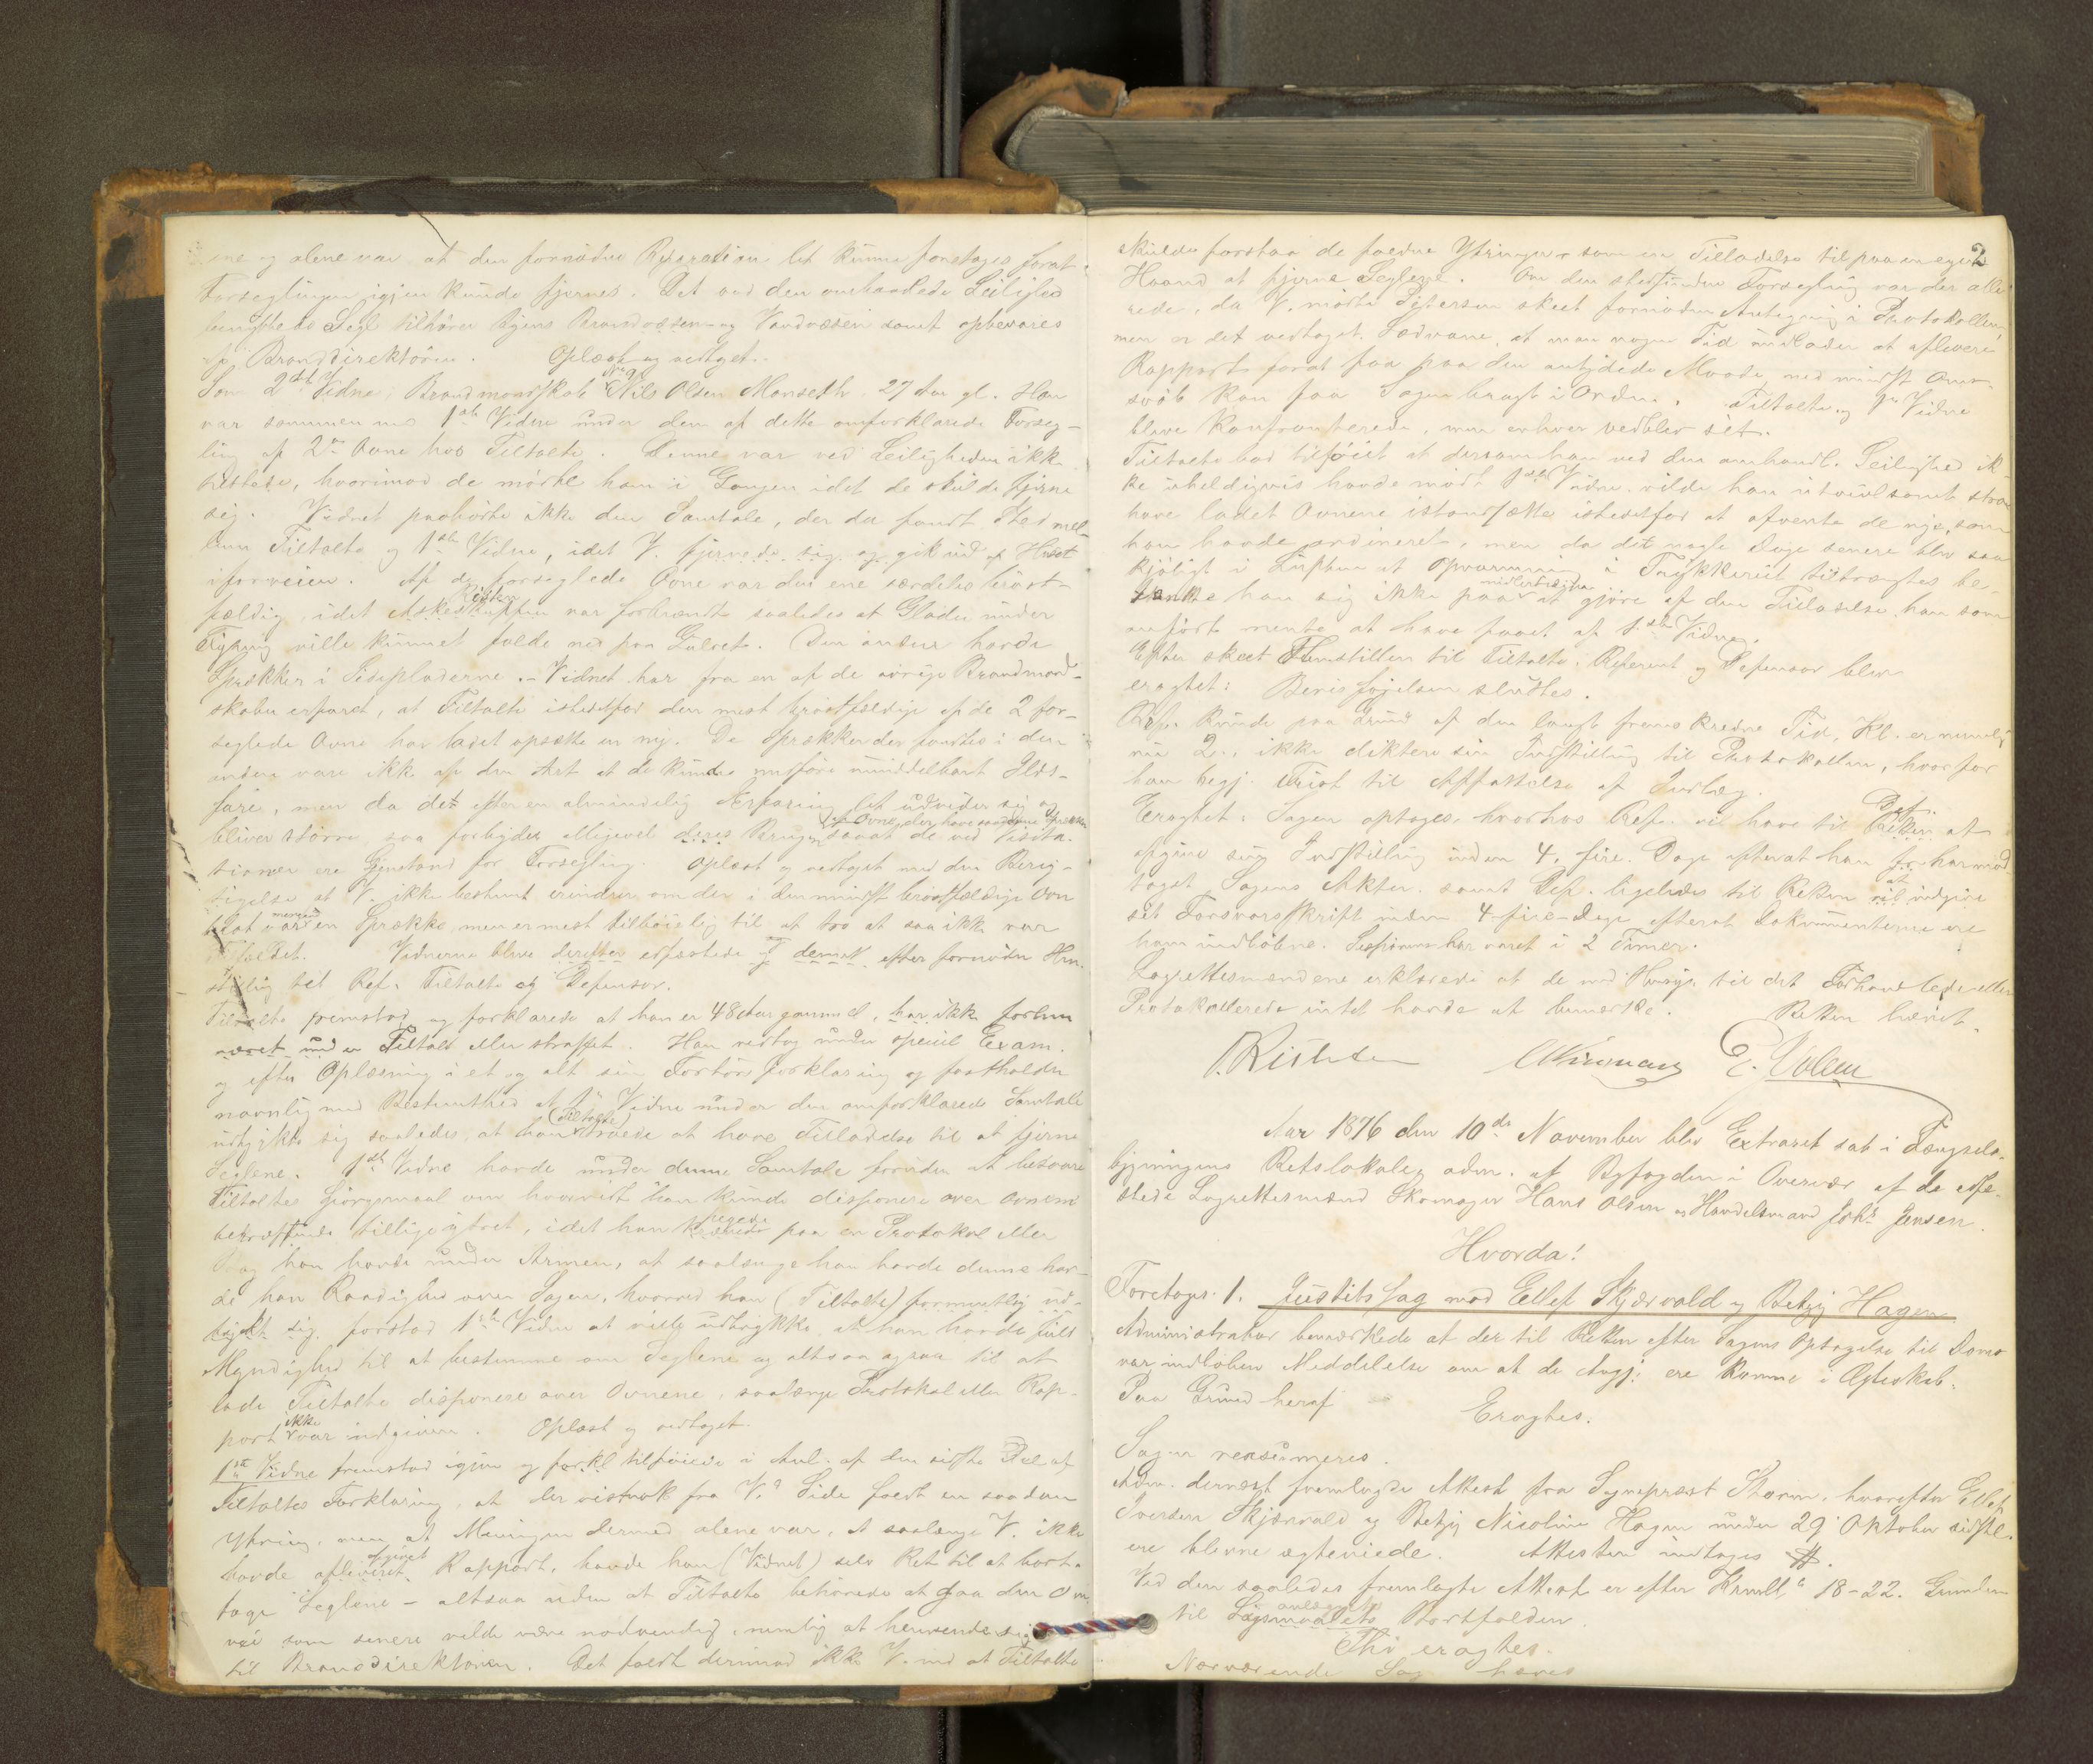 ene og alene var at den fornødne Reparation let kunne foretages forat
Forseglingen igjen kunde fjernes. Det ved den omhandlede Leilighed
benyttede Segl tilhører Byens Brandvæsen og Vandvæsen samt opbevares
af Branddirektören. Oplæst og vedtaget.
Som 2det Vidne: Brandmandskab Nils Olsen Monseth 27 Aar gl. Han
var sammen med 1ste Vidne under den af dette omforklarede Forseg-
ling af 2de Ovne hos Tiltalte. Denne var ved Leiligheden ikke
tilstede, hvorimod de mödte ham i Gangen idet de skulde fjerne
sig. Vidnet paahörte ikke den Samtale, der da fandt Sted mel-
lem Tiltalte og 1ste Vidne, idet V. fjernede sig og gik ud af Huset
iforveien. Af de forseglede Ovne var den ene særdeles bröst-
fældig, idet Askeskuffen var forbrændt saaledes at Gløder under
Fyring ville kunnet falde ned paa Gulvet. Den anden havde
Sprækker i Sidepladerne. - Vidnet har fra en af de övrige Brandmand-
skaber erfaret, at Tiltalte istedetfor den mest bröstfældige af de 2 for-
seglede Ovne har ladet opsætte en ny. De Sprækker der fandtes i den
anden vare ikke af den Art at de kunde medføre umiddelbart Ilds-
fare, men da det efter en almindelig Erfaring let udvider sig og
bliver större saa forbydes alligevel deres Brugen af Ovne, der have saadanne Sprækker saaat de ved Visita-
tioner ere Gjenstand for Forsegling. Oplæst og vedtaget med den Berig-
tigelse at V. ikke bestemt erindrer om der i den mindst bröstfældige Ovn
var en Sprække, men er mest tilböielig til at tro at saa ikke var
Tilfældet. Vidnerne bleve derefter edfæstede og demit. efter fornöden Hen-
stilling til Ref. Tiltalte og Defensor.
Tiltalte fremstod og forklarede at han er 48 Aar gammel, har ikke forhen
været under Tiltale eller straffet. Han vedtog under speciel Exam.
og efter Oplæsning i et og alt sin Forhörsforklaring og fastholder
navnlig med Bestemthed at 1ste Vidne under den omforklarede Samtale
udtrykte sig saaledes, at han (Tiltalte) troede at have Tilladelse til at fjerne
Seglene. 1ste Vidne havde under denne Samtale foruden at besvare
Tiltaltes Spörgsmaal om hvorvidt han kunde disponere over Ovnene
bekræftende tillige ytret, idet han pegede paa en Protokol eller
Bog han havde under Armen, at saalænge han havde denne hav-
de han Raadighed over Sagen, hvorved han (Tiltalte) formentlig ud-
forstod 1ste Vidne at ville udtrykke at han havde fuld
Myndighed til at bestemme om Seglene og altsaa ogsaa til at
lade Tiltalte disponere over Ovnene, saalænge Protokol eller Rap-
port ikke var indgiven. Oplæst og vedtaget.
1ste Vidne fremstod igjen og forkl tilföiede i Anl. af den sidste Del af
Tiltaltes Forklaring, at der vistnok fra V.s Side faldt en saadan
Ytring, men at Meningen dermed alene var, at saalænge V. ikke
havde afgivet Rapport, havde han (Vidnet) selv Ret til at bort-
tage Seglene - altsaa uden at Tiltalte behövede at gaa den Om
vei som senere vilde være nödvendig, nemlig at henvende sig
til Branddirektören. Det faldt derimod ikke V. ind at Tiltalte
2
skulde forstaa de faldne Ytringer som en Tilladelse til paa en egen
Haand at fjerne Seglene. Om den stedfundne Forsegling var der alle
rede, da V. mødte Petersen skeet fornöden Antegning i Protokollen
men er det vedtaget Sædvane, at man nogen Tid undlader at aflevere
Rapport forat faa paa den antydede Maade med mindst Om-
svöb kan faa Sagen bragt i Orden. Tiltalte og 1ste Vidne
bleve konfronterede, men enhver vedblev sit.
Tiltalte bad tilföiet at dersom han ved den omhandl. Leilighed ik-
ke uheldigvis havde mödt 1ste Vidne, vilde han utvivlsomt strax
have ladet Ovnene istandsætte istedetfor at afvente de nye, som
han havde ordineret, men da det nogle Dage senere blev saa
kjöligt i Luften at Opvarmning i Trykkeriet tiltrængtes be-
tænkte han sig ikke paa midlertidigen at gjöre af den Tilladelse han som
anfört mente at have faaet af 1ste Vidne.
Efter skeet Henstillen til Tiltalte, Referent og Defensor blev
eragtet: Bevisföjelsen sluttes.
Refer. kunde paa Grund af den langt fremskredne Tid, Kl. er nemlig
nu 2, ikke diktere sin Indstilling til Protokollen, hvorfor
han begj. Frist til Affattelse af Indlæg.
Eragtet: Sagen optages, hvorhos Ref. vil have til Def. at
afgive sin Indstilling inden 4, fire. Dage efterat han har mod
taget Sagens Akter, samt Def. ligeledes til Retten at indgive
sit Forsvarsskrift inden 4-fire-Dage efterat Dokumenterne ere
ham indløbne. Sessionen har varet i 2 Timer.
Lagrettesmændene erklærede at de med Hensyn til det Forhandlede eller
Protokollerede intet havde at bemærke. Retten hævet.
Richter E. Volden
Aar 1876 den 10de November blev Extraret sat i Fængsels-
bygningens Retslokale, adm. af Byfogden i Overvær af de edfæ-
stede Lagrettesmænd Skomager Hans Olsen og Handelsmand Johs Jensen.
Hvorda!
Foretoges: 1. Justitssag mod Ellef Skjærvold og Betzy Hagen
Administrator bemærkede at der til Retten efter Sagens Optagelse til Doms
var indløben Meddelelse om at de Angj. ere komne i Ægteskab.
Paa Grund heraf
Eragtes.
Sagen reassumeres.
Adm. dernæst fremlagde Attest fra Sognepræst Storm, hvorefter Ellef
Iversen Skjærvold og Betzy Nicoline Hagen under 29 Oktober sidstl.
ere blevne ægteviede. Attesten indtages #.
Ved den saaledes fremlagte Attest er efter Krmll. 18-22. Grunden
til Sögsmaalets Bortfalden.
Thi eragtes.
Nærværende Sag hæves